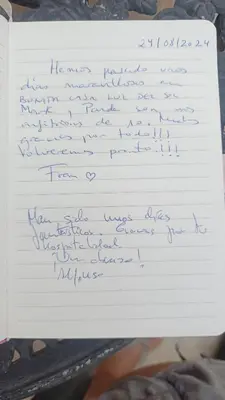 29/08/2024
Hemos pasado unos
días maravillosos en
BONITA CASA LUZ DEL SU
anfitriones de 10. Muchas
gracias por todo!!!
Volveremos pronto!!!!
Fran ♡
Han sido unos días
fantásticos. Gracias por tu
hospitalidad
¡Un abrazo!
Alfonso